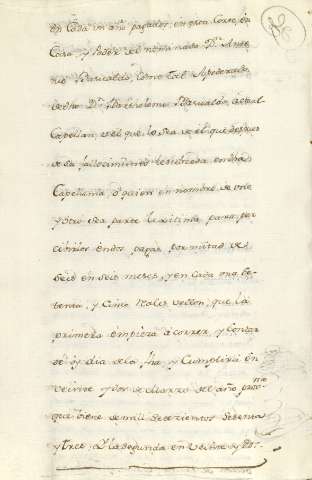 en Cada un año pagados en esta Corte, en
Casa, y Poder del nominado Dn. Anto
nio Basualdo, como tal Apoderado
de dho Dn. Bartholome Basualdo, actual
Capellan, o del que lo sea, o el que despues
de su fallecimiento le suceda en dha
Capellania, o quien en nombre de uno
y otro sea parte lexitima para per
civirlos en dos pagas por mitad de
seis en seis meses, y en cada una se
tenta, y Cinco Reales vellon, que la
primera empieza á correr, y contar
desde oy dia de la fha, y Cumplirá en
veinte y dos de Marzo del año proximo
que viene de mil Setezientos setenta
y tres, y la segunda en veinte y dos